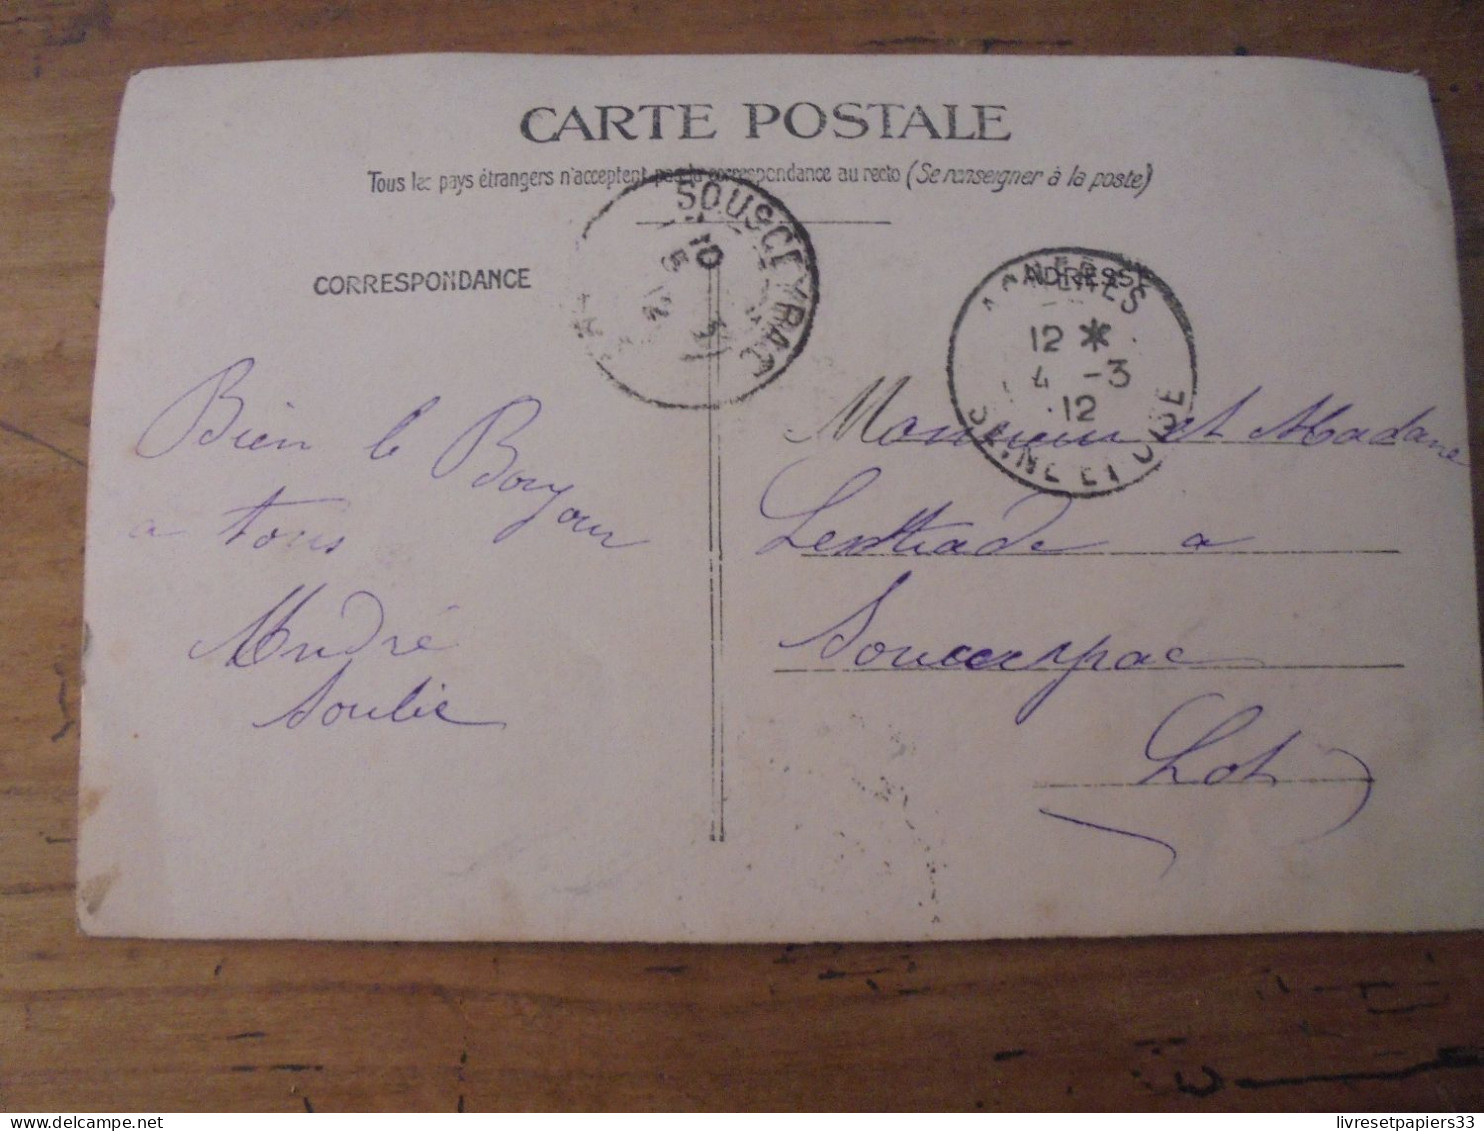 CARTE POSTALE
Tous les pays étrangers n'acceptent pas la correspondance au recto (Se renseigner à la poste)
CORRESPONDANCE
ADRESSE
SOUSCEYRAC
10
5 - 3
12
12 *
4 - 3
12
SEINE ET OISE
Bien le Bonjour
a tous
André
Soulié
Monsieur et Madame
Lestrade a
Souceyrac
Lot
livresetpapiers33